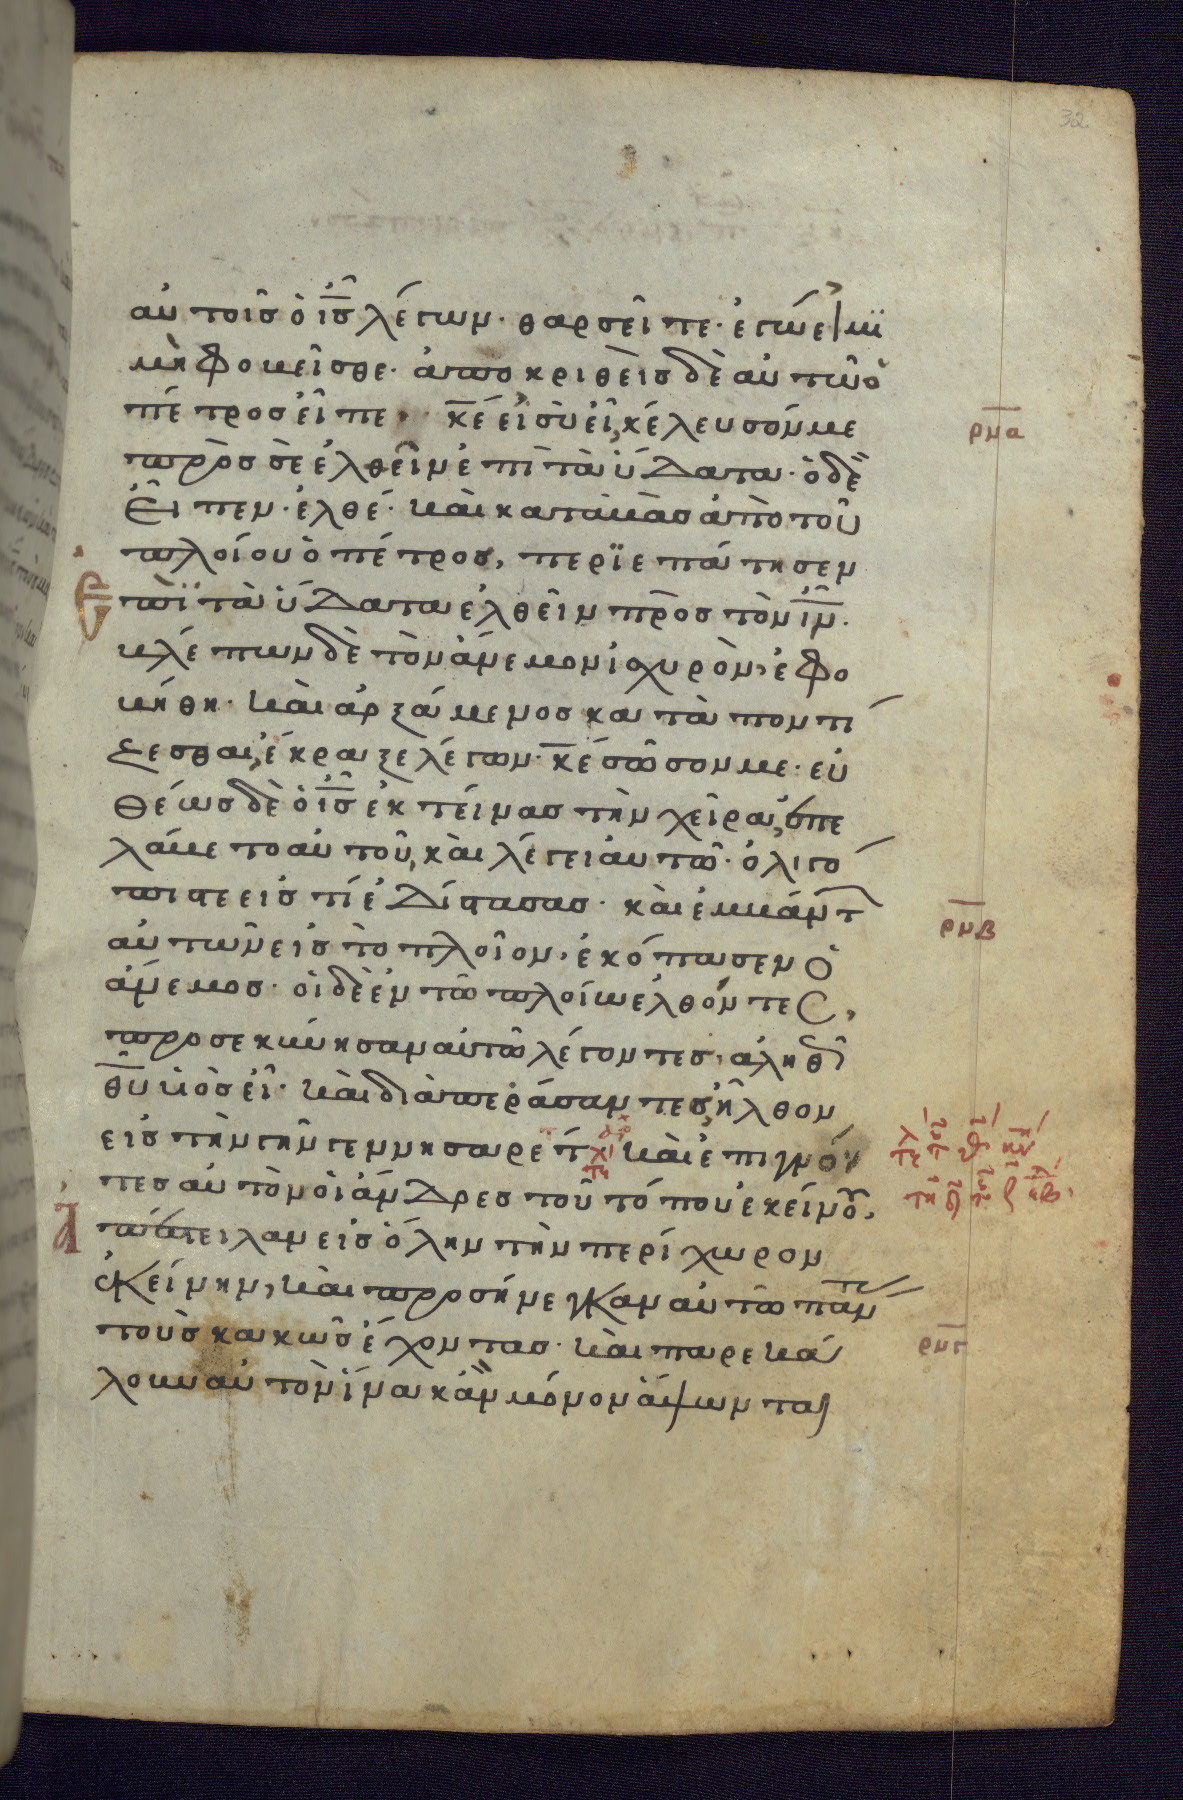 32
αὐτοῖσ ὁ ἰ̅σ̅ λέγων· θαρσεῖτε· ἐγώ εἰμι
μὴ φοβεῖσθε· ἀποκριθεὶσ δὲ αὐτῶ ὁ
πέτροσ εἶπε· κ̅ε̅ εἰ σὺ εἶ, κέλευσόν με
ρμα
πρὸσ σὲ ἐλθεῖν ἐπὶ τὰ ὕδατα· ὁ δὲ
εἶπεν· ἐλθέ· καὶ καταβὰσ ἀπὸ τοῦ
πλοίου ὁ πέτροσ, περιεπάτησεν
ἐπὶ τὰ ὕδατα ἐλθεῖν πρὸσ τὸν ἰ̅ν̅·
βλέπων δὲ τὸν ἄνεμον ἰσχυρὸν, ἐφο
βήθη· καὶ ἀρξάμενοσ καταποντί
ζεσθαι, ἔκραξε λέγων· κ̅ε̅ σῶσον με· εὐ
θέωσ δὲ ὁ ἰ̅σ̅ ἐκτείνασ τὴν χεῖρα, ἐπε
λάβετο αὐτοῦ, καὶ λέγει αὐτῶ· ὀλιγό
πιστε εἰσ τί ἐδίστασασ· καὶ ἐμβάντ
ρμβ
αὐτῶν εἰσ τὸ πλοῖον, ἐκόπασεν ὁ
ἄνεμοσ· οἱ δὲ ἐν τῶ πλοίω ἐλθόντεσ,
προσεκύνησαν αὐτῶ λέγοντεσ, ἀληθ
θ̅υ̅ υἱὸσ εἶ· καὶ διαπεράσαντεσ, ἦλθον
εἰσ τὴν γῆν γεννησαρέτ καὶ ἐπιγνόν
τεσ αὐτὸν οἱ ἄνδρεσ τοῦ τόπου ἐκείνου,
ἀπέστειλαν εἰσ ὅλην τὴν περίχωρον
ἐκείνην, καὶ προσήνεγκαν αὐτῶ πάν
τουσ κακῶσ ἔχοντασ· καὶ παρεκά
ρμγ
λουν αὐτὸν ἵνα κἂν μόνον ἅψωνται